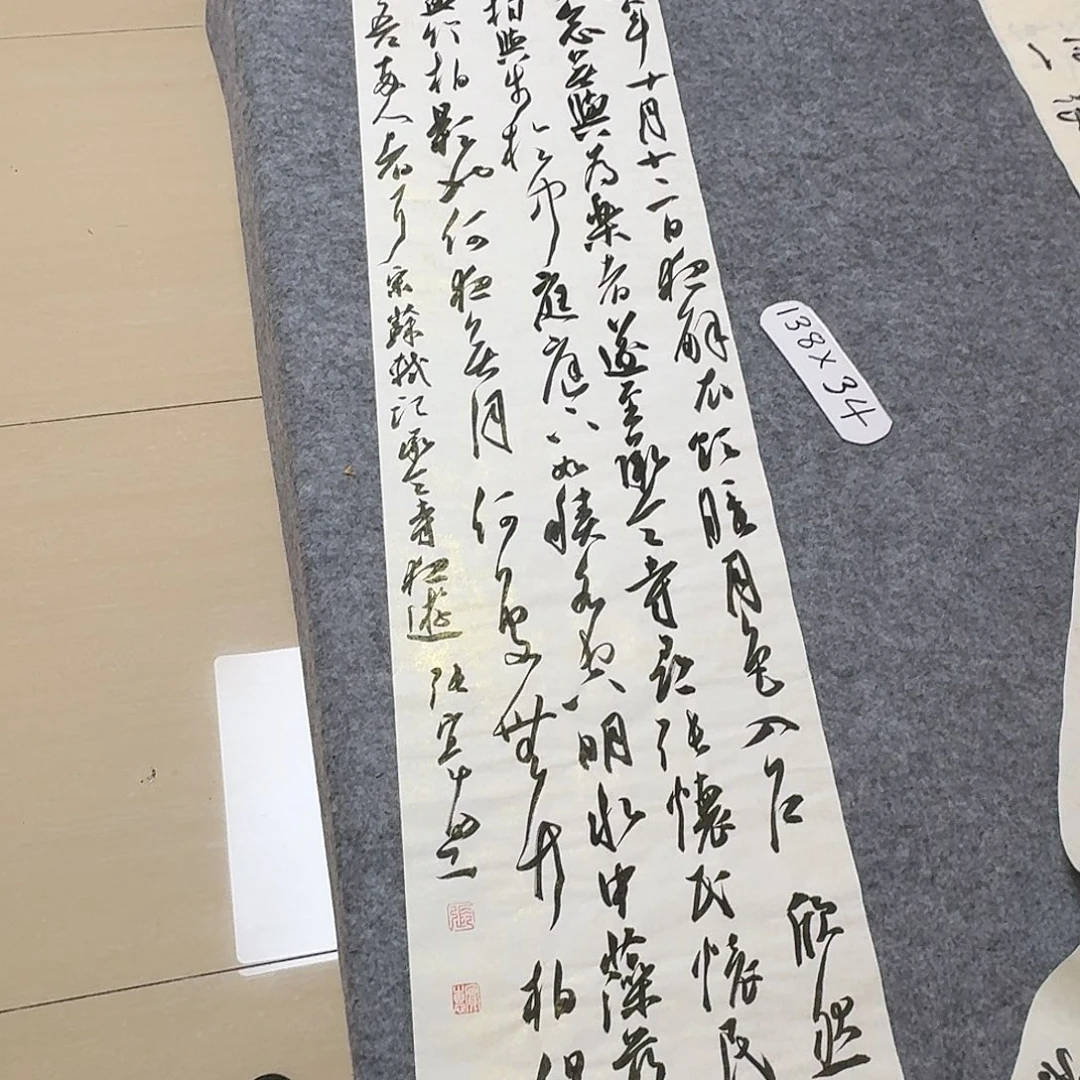 年十月十二日夜解衣欲睡月色入户欣然
念無與為樂者遂至承天寺尋張懷民懷民
相與步於中庭庭下如積水空明水中藻荇
蓋竹柏影也何夜無月何處無竹柏但
吾兩人者耳宋蘇軾記承天寺夜遊張宜
張
138×34